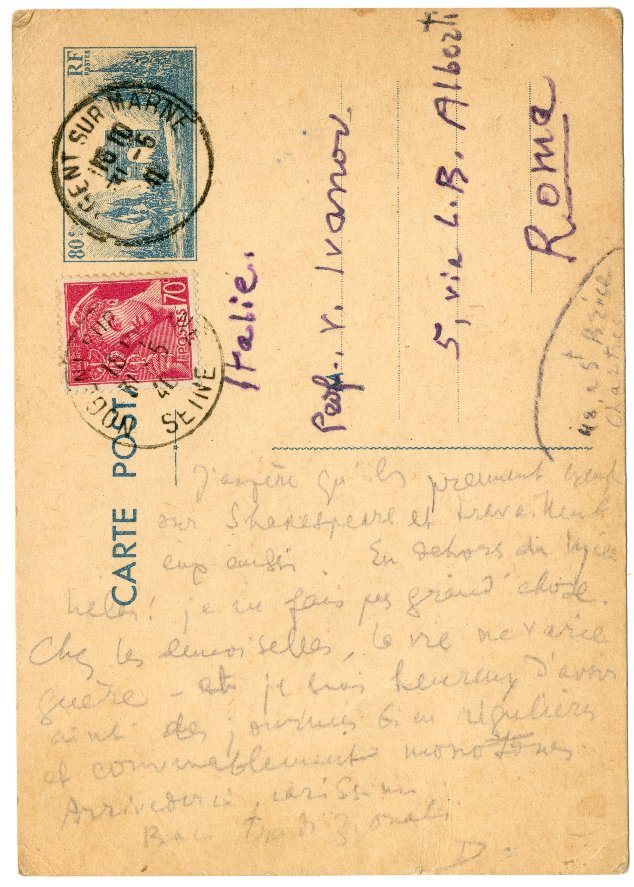 RF
POSTES
80c
NOGENT SUR MARNE
18 10
31 - 5
41
70c
POSTES
NOGENT SUR
18
31 5
41
SEINE
CARTE POSTALE
Prof. V. Ivanov.
5, via L. B. Alberti
Roma
Italie.
42, r St Brice
Chartres
J'espère qu'ils prennent
sur Shakespeare et travaillent
eux aussi. En dehors du lycée
hélas! je ne fais pas grand'chose.
Chez les demoiselles, la vie ne varie
guère - et je suis heureux d'avoir
ainsi des journées bien régulières
et convenablement monotones.
Arrivederci, carissimi
Baci tradizionali
D.